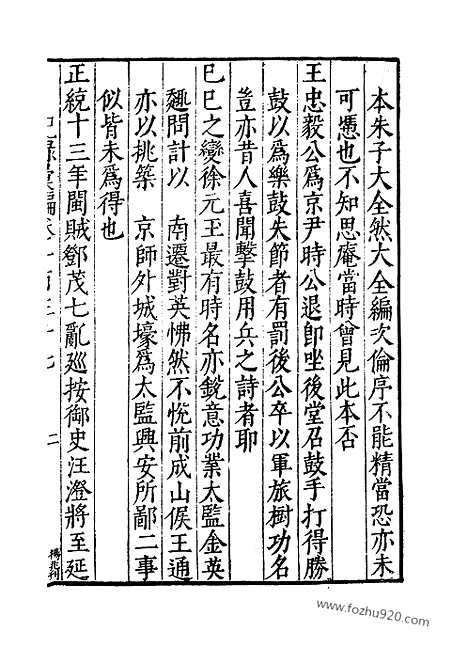 本朱子大全然大全編次倫序不能精當恐亦未
可慿也不知思庵當時曾見此本否
王忠毅公爲京尹時公退卽坐後堂召鼓手打得勝
鼓以爲樂鼓失節者有罰後公卒以軍旅樹功名
豈亦昔人喜聞擊鼓用兵之詩者耶
已巳之變徐元玉最有時名亦銳意功業太監金英
趣問計以　南遷對英怫然不悅前成山侯王通
亦以挑築　京師外城壕爲太監興安所鄙二事
似皆未爲得也
正統十三年閩賊鄧茂七亂廵按御史汪澄將至延
紀錄彙編卷一百三十七
二
www.fozhu920.com